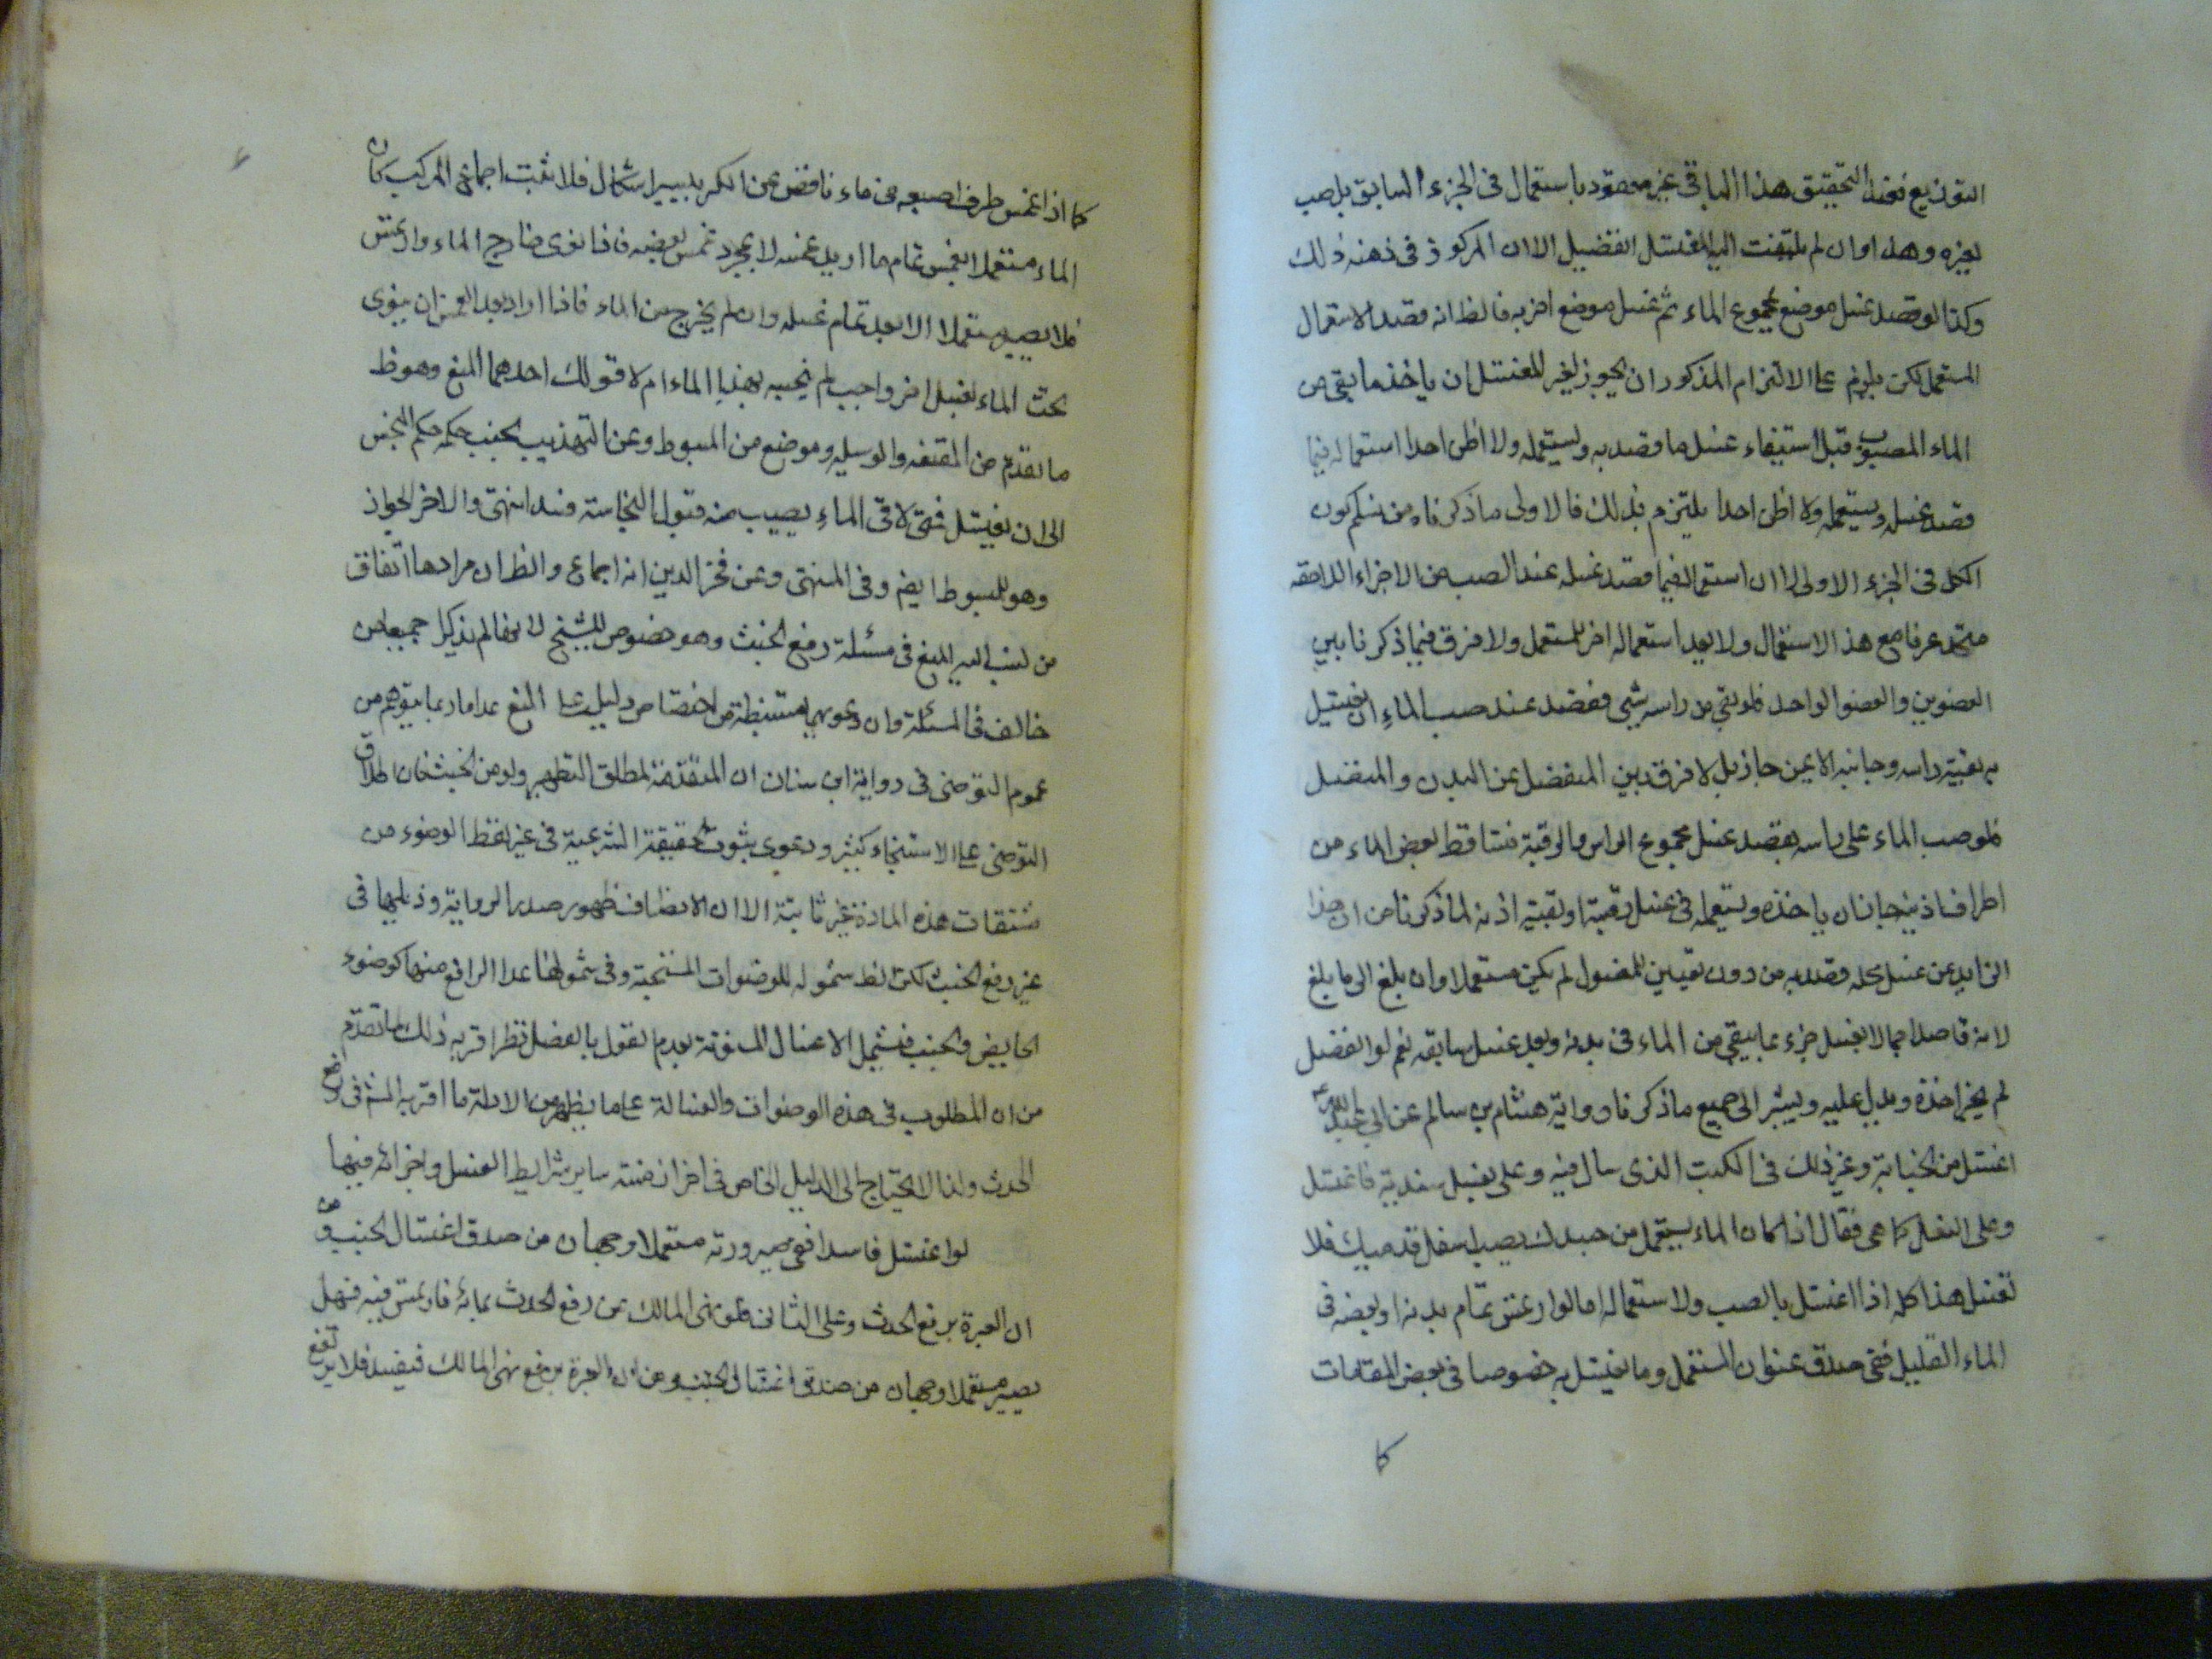 التوزيع فعند التحقيق هذا الباقي غير مقصود باستعمال في الجزء السابق بل صب
لغيره وهذا وان لم يلتفت اليه المغتسل تفضيل الا ان المركوز في ذهنه ذلك
وكذا لو قصد غسل موضع بمجموع الماء ثم غسل موضع اخر به فالظ انه قصد الاستعمال
المستعمل لكن يلزم على الالتزام المذكور ان يجوز لغير المغتسل ان ياخذ ما بقي من
الماء المصبوب قبل استيفاء غسل ما قصد به ويستعمله ولا اظن احدا استعماله فيما
قصد غسله ويستعمله ولا اظن احدا يلتزم بذلك فالاولى ما ذكرناه من كون
الكل في الجزء الاولى الا ان استعماله فيما قصد غسله عند الصب من الاجزاء اللاحقه
متحد عرفا مع هذا الاستعمال ولا يعد استعماله اخر للمستعمل ولا فرق فيما ذكرنا بين
العضوين والعضو الواحد فلو بقي من راسه شيء فقصد عند صب الماء ان يغتسل
به بقية راسه وجانبه الايمن جاز بل لا فرق بين المنفصل عن البدن والمتصل
فلو صب الماء على راسه بقصد غسل مجموع الراس والرقبة فتساقط بعض الماء من
اطراف اذنيه جاز ان ياخذه ويستعمله في غسل رقبته او بقية اذنه لما ذكرنا من ان هذا
الزايد عن غسل محله قصد به من دون تعيين للمغسول لم يكن مستعملا وان بلغ الى ما بلغ
لانه قاصد اجمالا بغسل جزء بما يبقى من الماء في بدنه وبعد غسل سابقه نعم لو انفصل
لم يجز اخذه ويدل عليه ويشير الى جميع ما ذكرنا رواية هشام بن سالم عن ابي عبد الله ع
اغتسل من الجنابة وغير ذلك في الكنيف الذي يبال فيه وعلى نعل سندية فاغتسل
وعلى النعل كما هي فقال اذا كان الماء يستعمل من جسدك يصيب اسفل قدميك فلا
تغسل هذا كله اذا اغتسل بالصب والاستعماله اما لو ارتمس تمام بدنه او بعضه في
الماء القليل ففي صدق عنوان المستعمل وما يغتسل به خصوصا في بعض المقامات
كا
كا اذا غمس طرف اصبعه في ماء ناقص عن الكر بيسير اشكال فلا ثبت اجماع المركب كان
الماء مستعملا بغمس تمام ما اريد غمسه لا بمجرد غمس بعضه فاذا نوى خارج الماء وارتمس
فلا يصير مستعملا الا بعد تمام غسله وان لم يخرج من الماء فاذا اراد بعد الغمس ان ينوى
تحت الماء لغسل اخر واجب لم بهذا الماء ام لا قولك احدهما المنع وهو ظ
ما تقدم من المقنعه والوسيله وموضع من المبسوط وعن التهذيب الجنب حكمه حكم النجس
الى ان يغتسل فمتى لاقى الماء يصيب منه قبول النجاسة فسد انتهى والاخر الجواز
وهو للمبسوط ايضا وفي المنتهى وعن فخر الدين انه اجماع والظ ان مرادهما اتفاق
من نسب اليه المنع في مسئلة رفع الحدث وهو خصوص الشيخ لا لم يذكرا جميعا من
خالف في المسئلة وان دعويهما مستنبطة من اختصاص دليل المنع عدا ما ربما يتوهم من
عموم التوضى في رواية ابن سنان ان المتقدمة لمطلق التطهير ولو من الخبث فان اطلاق
التوضى على الاستنجاء كثير ودعوى ثبوت الحقيقة الشرعية في غير لفظ الوضوء من
مشتقات هذه المادة غير ثابتة الا ان الانصاف ظهور صدر الرواية وذيلها في
غير رفع الخبث لكن الظ شموله للوضوات المستحبة وفي شمولها عدا الرافع منها كوضوء
الحايض والجنب فيشمل الاغسال المسنونة بعدم القول بالفصل نظر اقربه ذلك لما تقدم
من ان المطلوب في هذه الوضوات والغسالة على ما يظهر من الادلة ما اقربه الشرع في رفع
الحدث ولذا لا يحتاج الى الدليل الخاص في اخر ساير شرايط الغسل واجزائه فيها
لو اغتسل فاسدا ففي صيرورته مستعملا وجهان من صدق اغتسال الجنب ومن
ان العبرة برفع الحدث وعلى الثاني فلو نهى المالك عن رفع الحدث بمائه فارتمس فيه فهل
يصير مستعملا وجهان من صدق اغتسال الجنب ومن ان العبرة برفع نهى المالك فيفسد فلا يرتفع